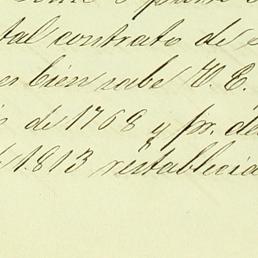 tal contrato de
es bien sabe V. E.
de 1768 y pr. de
1813 restablecida